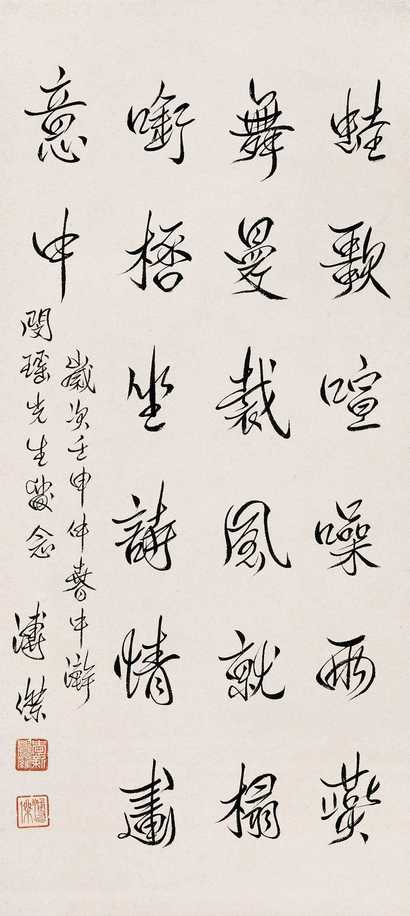 蛙歌喧噪雨燕
舞曼裁風就榻
啣桮坐詩情畫
意中
歲次壬申仲春中澣
閔瑤先生念
溥傑